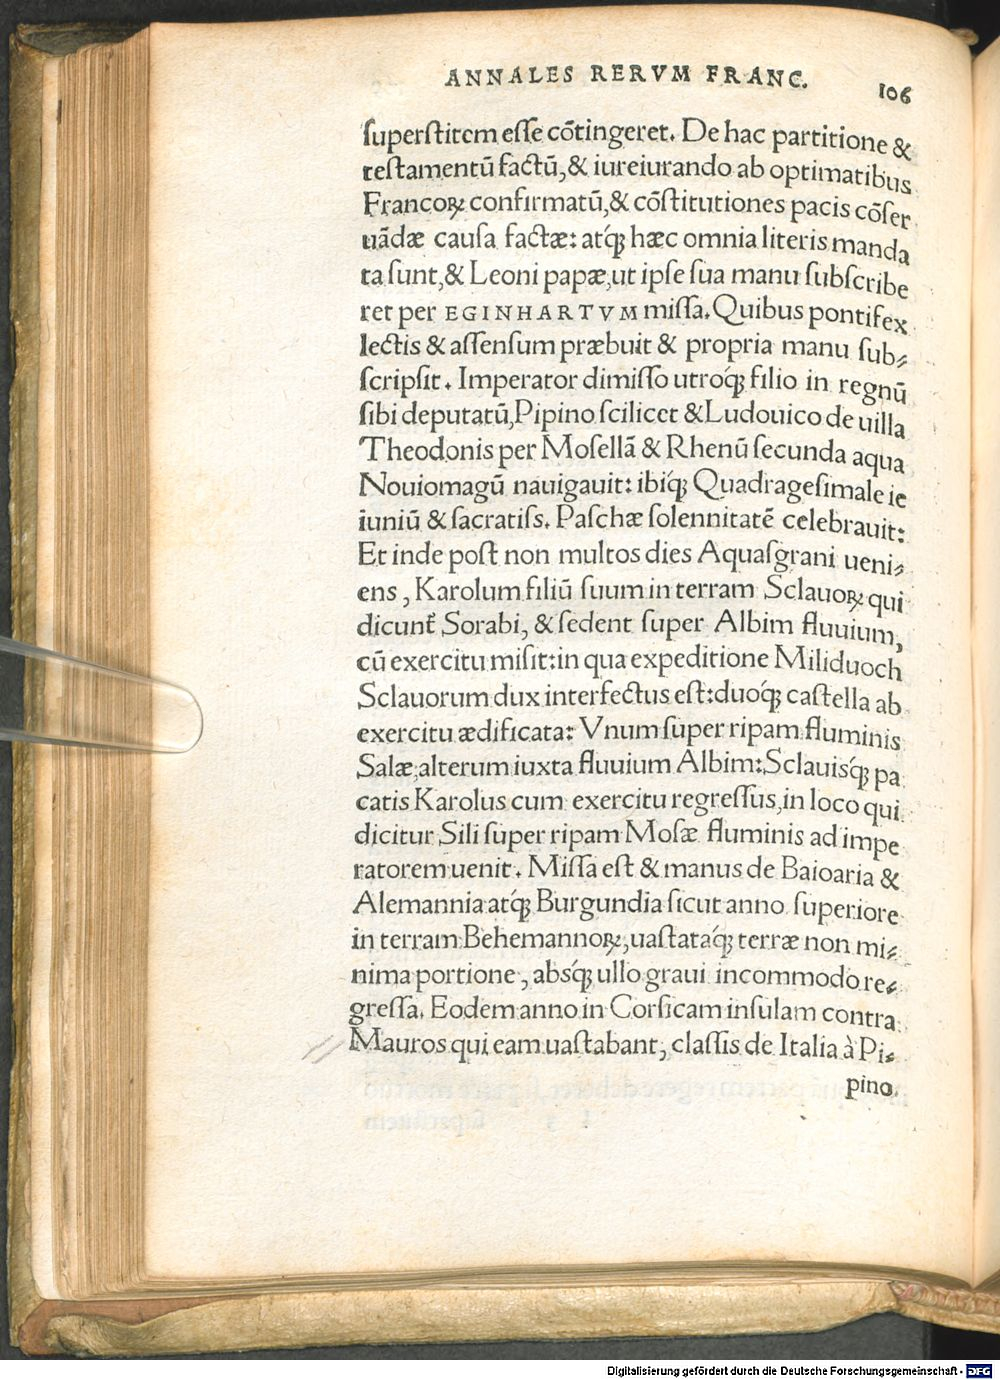 ANNALES RERVM FRANC. 106
ſuperſtitem eſſe cõtingeret. De hac partitione &
teſtamentũ factũ, & iureiurando ab optimatibus
Francoꝝ confirmatũ, & cõſtitutiones pacis cõſer
uãdæ cauſa factæ: atq́ꝫ hæc omnia literis manda
ta ſunt, & Leoni papæ, ut ipſe ſua manu ſubſcribe
ret per EGINHARTVM miſſa. Quibus pontifex
lectis & aſſenſum præbuit & propria manu ſub⸗
ſcripſit. Imperator dimiſſo utroq́ꝫ filio in regnũ
ſibi deputatũ, Pipino ſcilicet & Ludouico de uilla
Theodonis per Moſellã & Rhenũ ſecunda aqua
Nouiomagũ nauigauit: ibiq́ꝫ Quadrageſimale ie
iuniũ & ſacratiſs. Paſchæ ſolennitatẽ celebrauit:
Et inde poſt non multos dies Aquaſgrani ueni⸗
ens, Karolum filiũ ſuum in terram Sclauoꝝ qui
dicunt᷑ Sorabi, & ſedent ſuper Albim fluuium,
cũ exercitu miſit: in qua expeditione Miliduoch
Sclauorum dux interfectus eſt: duoq́ꝫ caſtella ab
exercitu ædificata: Vnum ſuper ripam fluminis
Salæ, alterum iuxta fluuium Albim: Sclauisq́ꝫ pa
catis Karolus cum exercitu regreſſus, in loco qui
dicitur Sili ſuper ripam Moſæ fluminis ad impe
ratorem uenit. Miſſa eſt & manus de Baioaria &
Alemannia atq́ꝫ Burgundia ſicut anno ſuperiore
in terram Behemannoꝝ, uaſtataq́ꝫ terræ non mi⸗
nima portione, absq́ꝫ ullo graui incommodo re⸗
greſſa. Eodem anno in Corſicam inſulam contra
Mauros qui eam uaſtabant, claſſis de Italia à Pi⸗
pino.
Digitalisierung gefördert durch die Deutsche Forschungsgemeinschaft - DFG